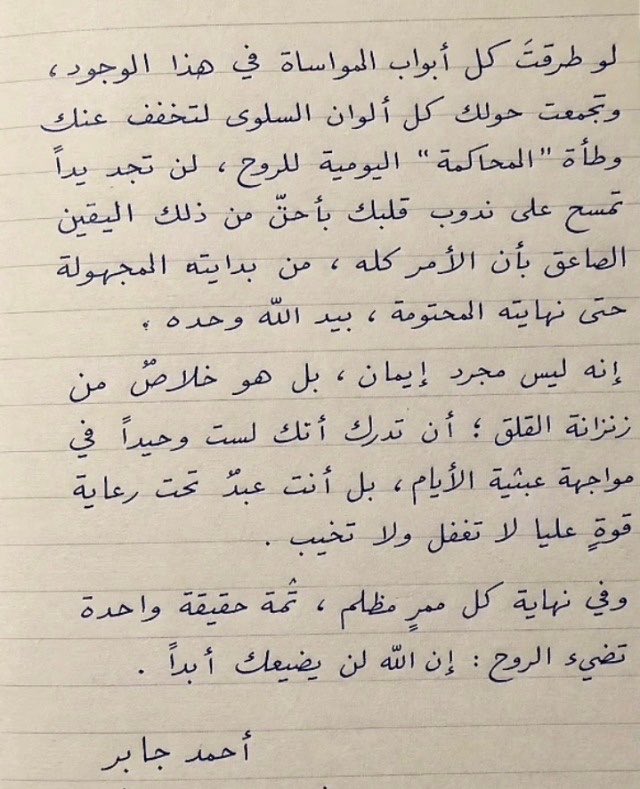 لو طرقتَ كل أبواب المواساة في هذا الوجود،
وتجمعت حولك كل ألوان السلوى لتخفف عنك
وطأة "المحاكمة" اليومية للروح، لن تجد يداً
تمسح على ندوب قلبك بأحنّ من ذلك اليقين
الصاعق بأن الأمر كله، من بدايته المجهولة
حتى نهايته المحتومة، بيد الله وحده.
إنه ليس مجرد إيمان، بل هو خلاصٌ من
زنزانة القلق؛ أن تدرك أنك لست وحيداً في
مواجهة عبثية الأيام، بل أنت عبدٌ تحت رعاية
قوةٍ عليا لا تغفل ولا تخيب.
وفي نهاية كل ممرٍ مظلم، ثمة حقيقة واحدة
تضيء الروح: إن الله لن يضيعك أبداً.
أحمد جابر